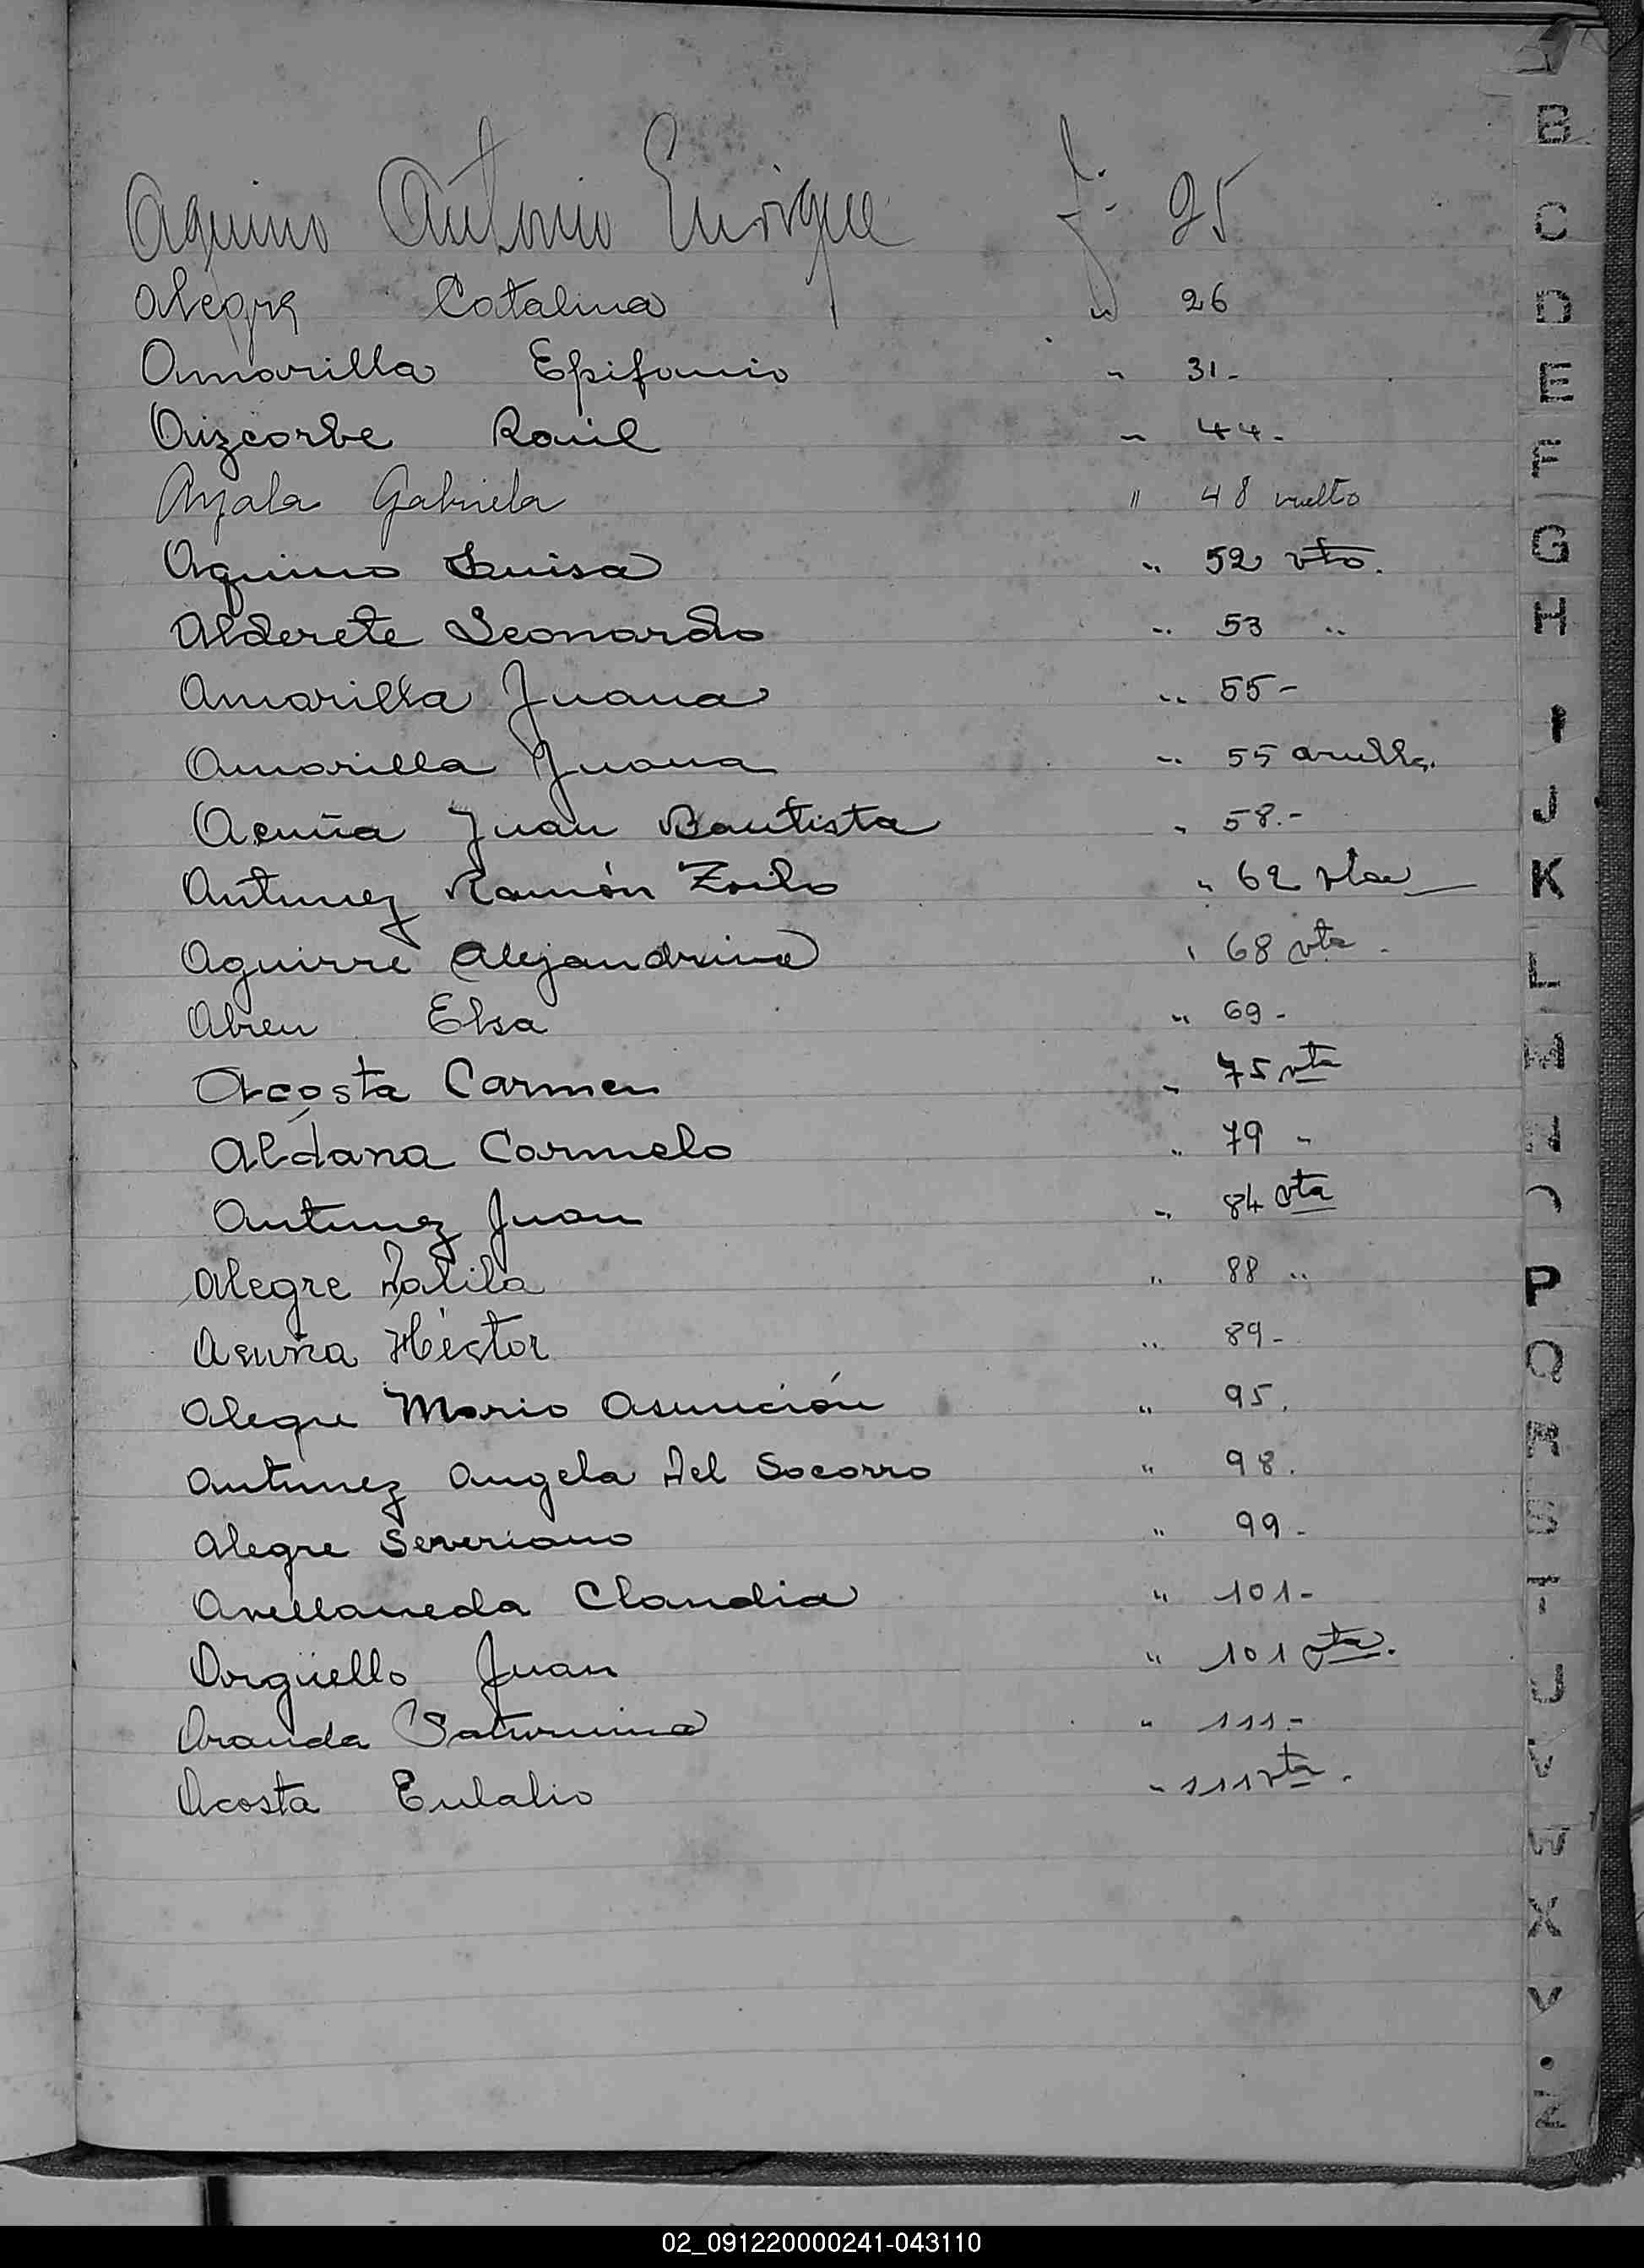 Aquino Antonio Enrique f. 25
Alegre Catalina " 26
Amarilla Epifanio " 31-
Aizcorbe Raúl " 44-
Ayala Gabriela " 48 vuelto
Aquino Luisa " 52 vto.
Alderete Leonardo " 53 "
Amarilla Juana " 55-
Amarilla Juana " 55
Acuña Juan Bautista " 58.-
Antunez Ramón Zoilo " 62 vta
Aguirre Alejandrina " 68 vta -
Abreu Elsa " 69-
Acosta Carmen " 75 vta
Aldana Carmelo " 79 -
Antunez Juan " 84 vta
Alegre " 88 "
Acuña Héctor " 89-
Alegre Mario Asunción " 95.
Antunez Angela Del Socorro " 98.
Alegre Severiano " 99-
Avellaneda Claudia " 101-
Argüello Juan " 101 vta.
Aranda Saturnina " 111.-
Acosta Eulalio " 111 vta.
B
C
D
E
F
G
H
I
J
K
L
M
N
O
P
Q
R
S
T
U
V
W
X
Y
Z
02_091220000241-043110